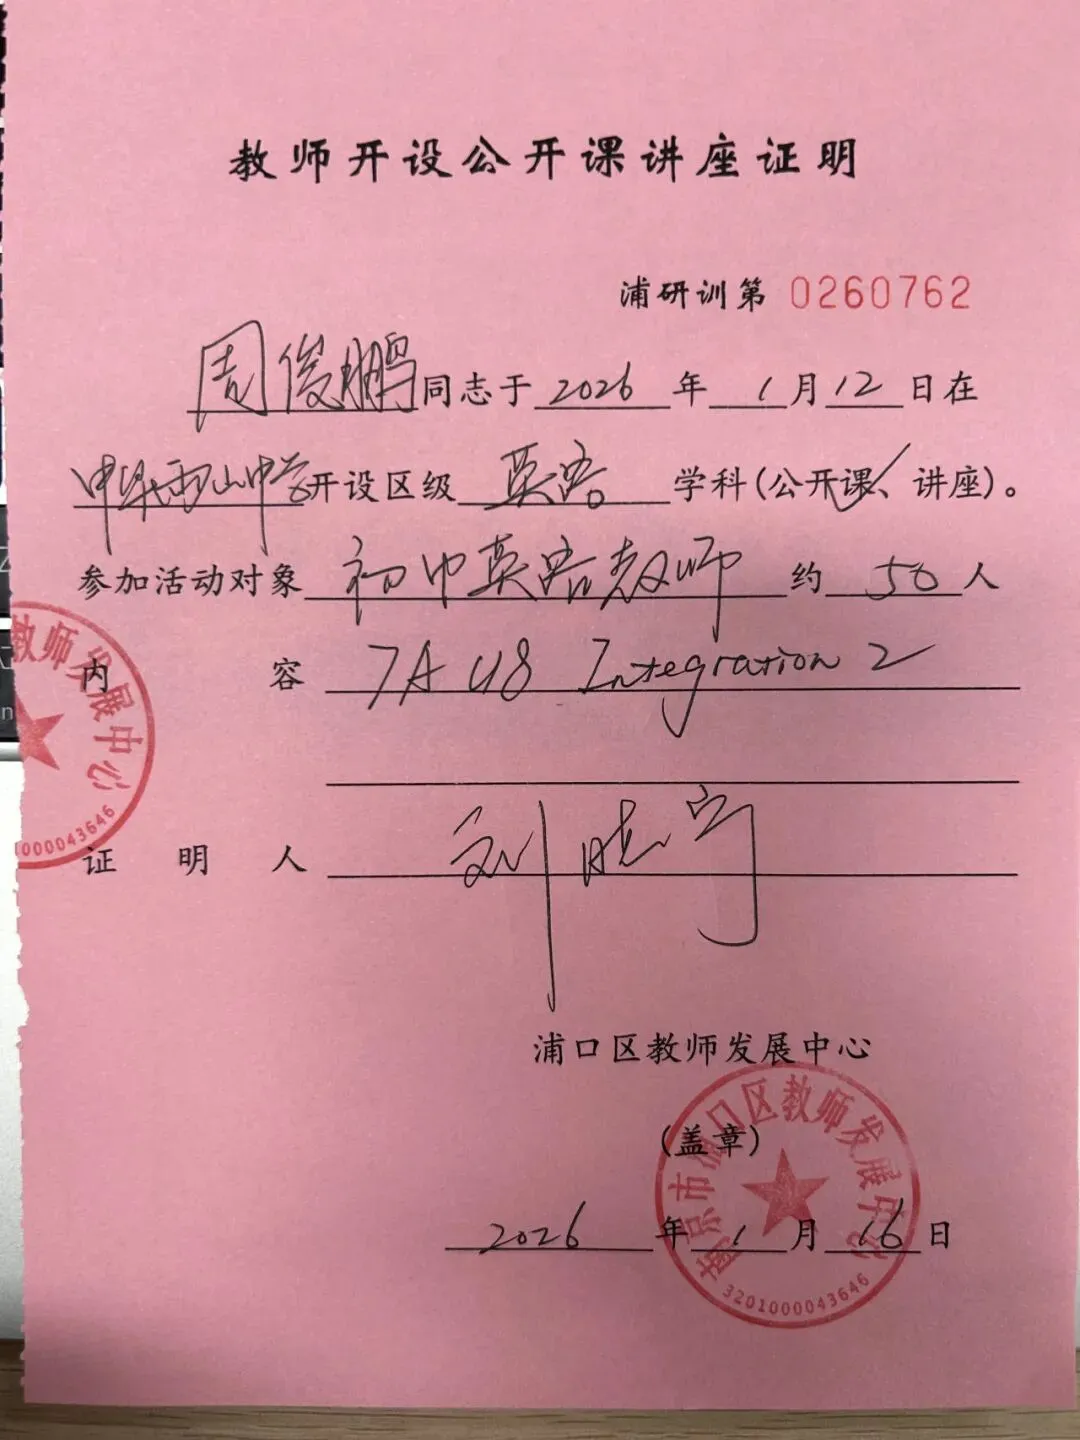 教师开设公开课讲座证明
浦研训第 0260762
周俊鹏同志于 2026 年 1 月 12 日在
开设区级 英语 学科(公开课✓、讲座)。
参加活动对象 初中英语教师 约 50 人
内容 7A U8 Integration 2
证明人 刘晓宁
浦口区教师发展中心
(盖章)
2026 年 1 月 16 日
南京市浦口区教师发展中心
3201000043646
教师发展中心
1000043646